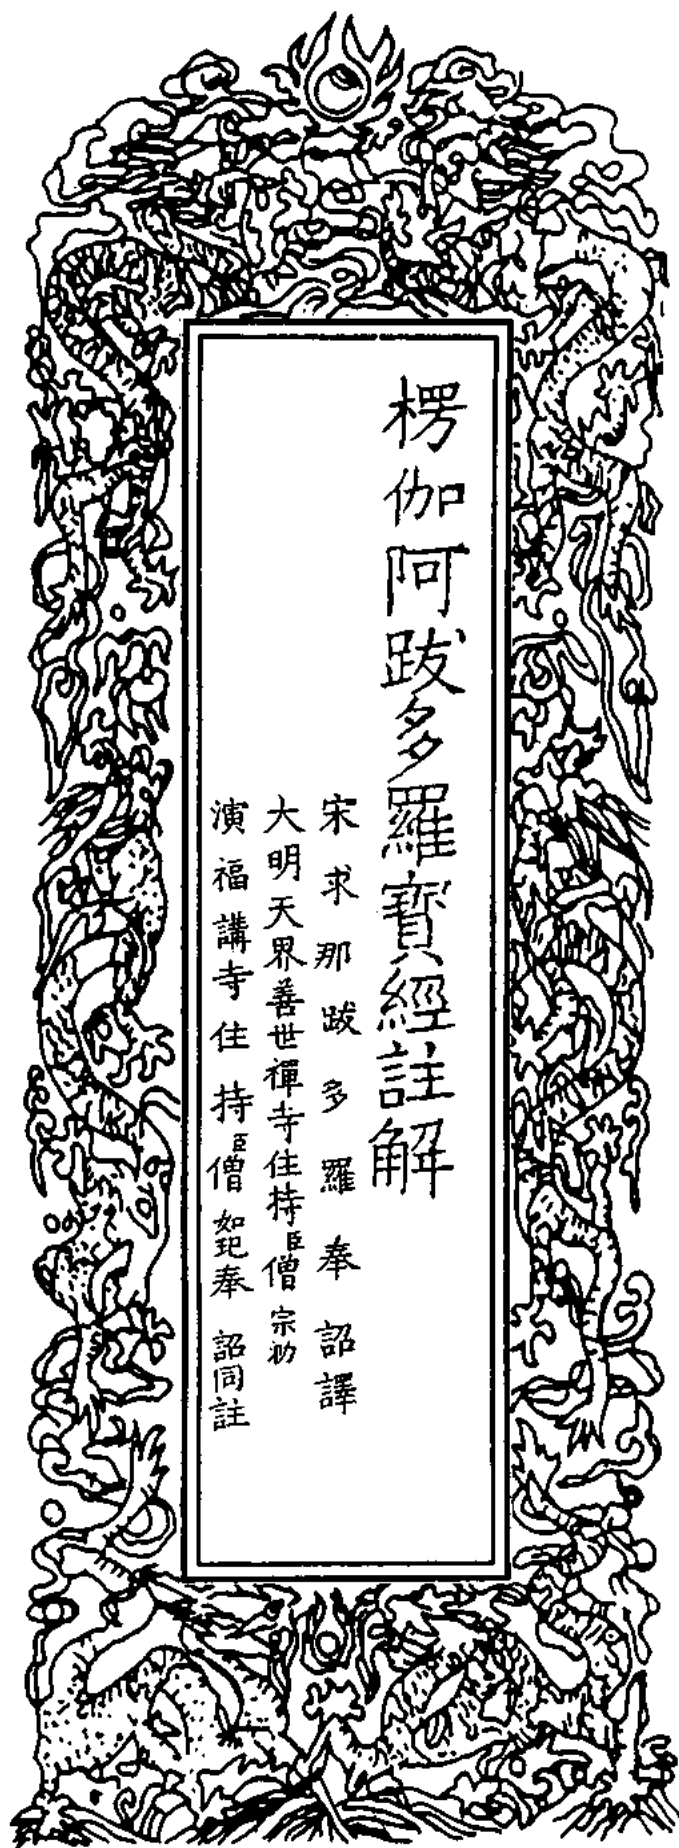 楞伽阿跋多羅寶經註解
宋求那跋多羅奉詔譯
大明天界善世禪寺住持臣僧宗泐
演福講寺住持臣僧如𤣱奉詔同註